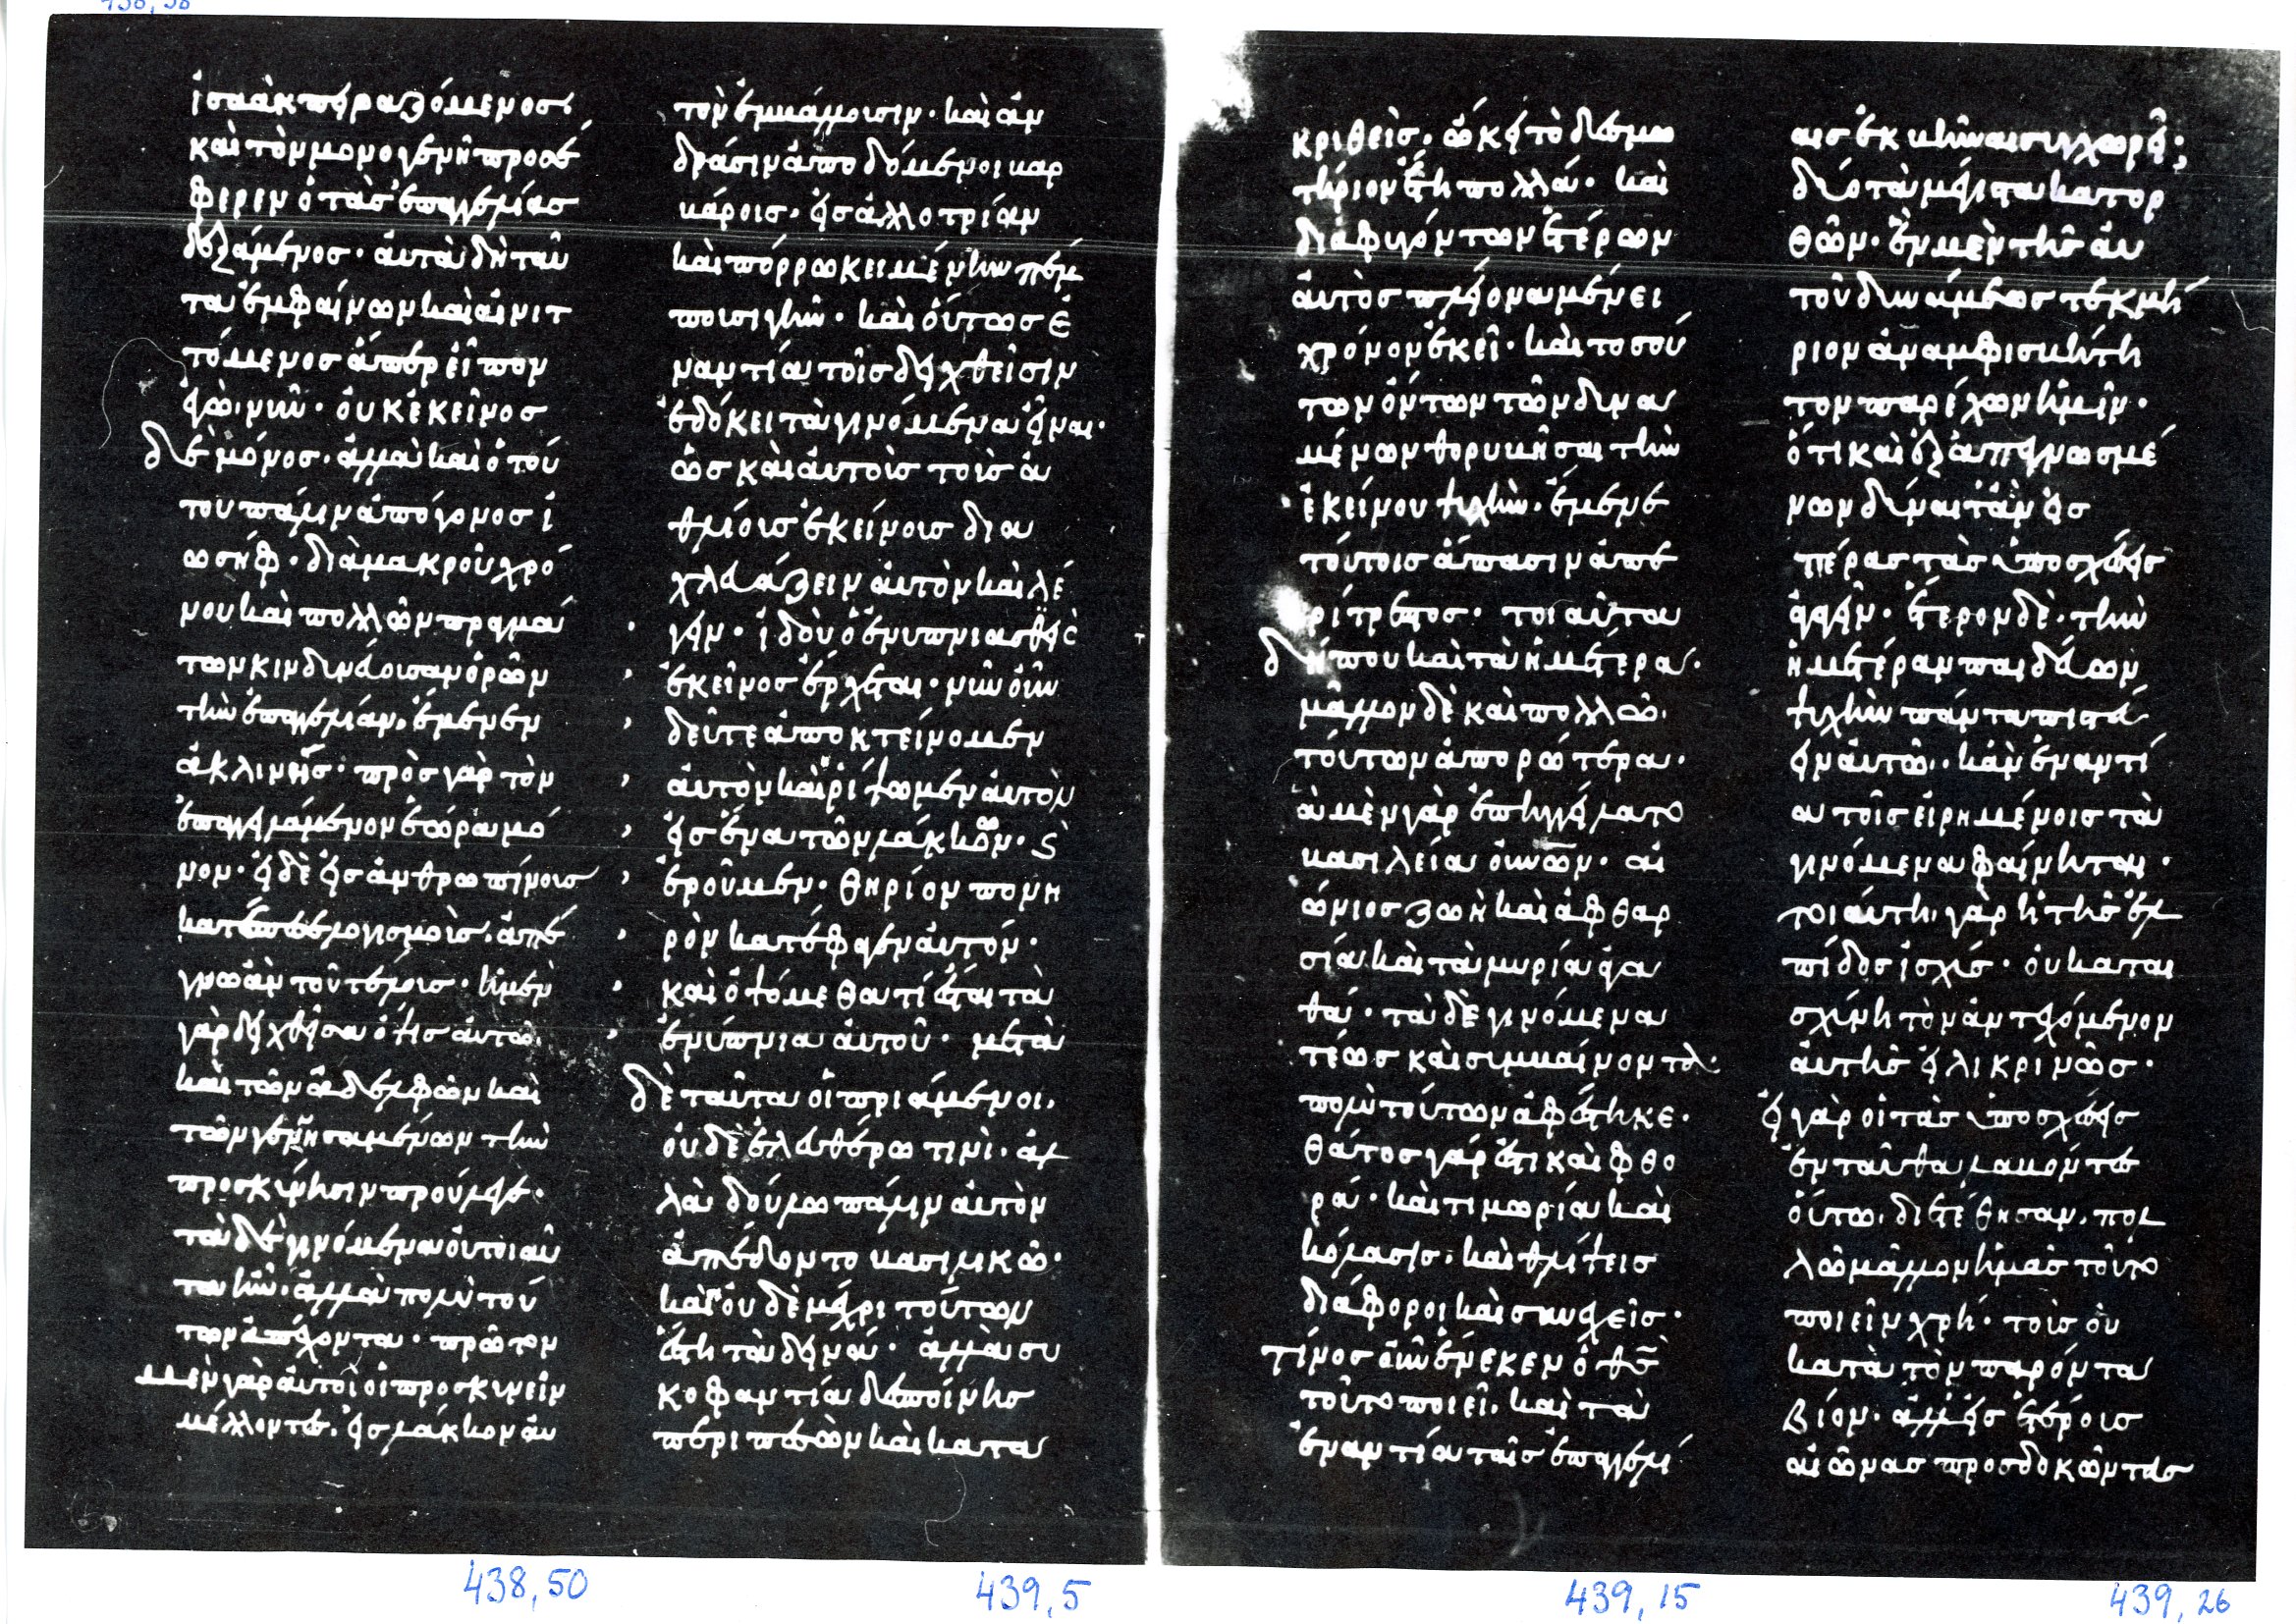 ἰσαὰκ πειραζόμενος·
καὶ τὸν μονογενῆ προσέ
φερεν ὁ τὰς ἐπαγγελίας
δεξάμενος· αὐτὰ δὴ ταῦ
τα ἐμφαίνων καὶ αἰνιτ
τόμενος ἅπερ εἶπον
νῦν· οὐκ ἐκεῖνος
δὲ μόνος· ἀλλὰ καὶ ὁ τού
του πάλιν ἀπόγονος ἰ
ωσήφ· διὰ μακροῦ χρό
νου καὶ πολλῶν πραγμά
των ὁρῶν
τὴν ἐπαγγελίαν, ἔμενεν
ἀκλινής· πρὸς γὰρ τὸν
ἐπαγγειλάμενον ἑώρα μό
νον· εἰ δὲ εἰς ἀνθρωπίνοις
κατέπεσε λογισμοῖς, ἀπέ
γνω ἂν τοῦ τέλους· ἡ μὲν
γὰρ δειχθεῖσα ὄψις αὐτῶ
καὶ τῶν ἀδελφῶν καὶ
τῶν γεννησαμένων τὴν
προσκύνησιν προύλεγε·
τὰ δὲ γινόμενα οὐ τοιαῦ
τα ἦν· ἀλλὰ πολὺ τού
των ἀπέχοντα· πρῶτον
μὲν γὰρ αὐτοὶ οἱ προσκυνεῖν
μέλλοντες, εἰς λάκκον αὐ
τὸν ἐμβάλλουσιν· καὶ ἀν
δράσιν ἀποδόμενοι βαρ
βάροις, εἰς ἀλλοτρίαν
καὶ πόρρω κειμένην πέμ
πουσι γῆν· καὶ οὕτως ἐ
ναντία τοῖς δειχθεῖσιν
ἐδόκει τὰ γινόμενα εἶναι·
ὡς καὶ αὐτοῖς τοῖς ἀ
θλίοις ἐκείνοις δια
χλευάζειν αὐτὸν καὶ λέ
γειν· ἰδοὺ ὁ ἐνυπνιασθεὶς
ἐκεῖνος ἔρχεται· νῦν οὖν
δεῦτε ἀποκτείνομεν
αὐτὸν καὶ ῥίψωμεν αὐτὸν
εἰς ἕνα τῶν λάκκων· καὶ
ἐροῦμεν· θηρίον πονη
ρὸν κατέφαγεν αὐτόν·
καὶ ὀψόμεθα τί ἔσται τὰ
ἐνύπνια αὐτοῦ· μετὰ
δὲ ταῦτα οἱ πριάμενοι,
οὐδὲ ἐλευθέρω τινὶ· ἀλ
λὰ δούλω πάλιν αὐτὸν
ἀπέδοντο βασιλικῶ·
καὶ οὐδὲ μέχρι τούτων
ἔστη τὰ δεινά· ἀλλὰ συ
κοφαντία δεσποίνης
περιπεσὼν καὶ κατα
κριθεὶς, ὤκει τὸ δεσμω
τήριον ἔτη πολλά· καὶ
διαφυγόντων ἑτέρων
αὐτὸς πλείονα μένει
χρόνον ἐκεῖ· καὶ τοσού
των ὄντων τῶν δυνα
μένων θορυβῆσαι τὴν
ἐκείνου ψυχὴν, ἔμενε
τούτοις ἅπασιν ἀπε
ρίτρεπτος· τοιαῦτα
δή που καὶ τὰ ἡμέτερα·
μᾶλλον δὲ καὶ πολλῶ
τούτων ἀπορώτερα·
ἃ μὲν γὰρ ἐπηγγείλατο
βασιλεία οὐνῶν· αἰ
ώνιος ζωὴ καὶ ἀφθαρ
σία καὶ τὰ μυρία ἀγα
θά· τὰ δὲ γινόμενα
τέως καὶ συμβαίνοντα
πολὺ τούτων ἀφέστηκε·
θάτος γάρ ἐστι καὶ φθο
ρά· καὶ τιμωρία καὶ
κόλασις· καὶ θλίψεις
διάφοροι καὶ συνεχεῖς·
τίνος οὖν ἕνεκεν ὁ θς
τοῦτο ποιεῖ, καὶ τὰ
ἐναντία ταῖς ἐπαγγελί
αις ἐκβῆναι συγχωρεῖ;
δύο τὰ μέγιστα κατορ
θῶν· ἓν μὲν τῆς αὐ
τοῦ δυνάμεως τεκμή
ριον ἀναμφισβήτη
τον παρέχων ἡμῖν·
ὅτι καὶ ἐξ ἀπεγνωσμέ
νων δύναιτ' ἂν εἰς
πέρας τὰς ὑποσχέσεις
ἀγαγεῖν· ἕτερον δὲ· τὴν
ἡμετέραν παιδεύων
ψυχὴν πάντα πιστεύ
ειν αὐτῶ, κἂν ἐναντί
α τοῖς εἰρημένοις τὰ
γινόμενα φαίνηται·
τοιαύτη γὰρ ἡ τῆς ἐλ
πίδος ἰσχύς· οὐ καται
σχύνει τὸν ἀντεχόμενον
αὐτῆς εἰλικρινῶς·
εἰ γὰρ οἱ τὰς ὑποσχέσεις
ἐνταῦθα λαβόντες
οὕτω διετέθησαν, πολ
λῶ μᾶλλον ἡμᾶς τοῦτο
ποιεῖν χρή· τοῖς οὐ
κατὰ τὸν παρόντα
βίον· ἀλλ' εἰς ἑτέρους
αἰῶνας προσδοκῶντας
438,50
439,5
439,15
439,26